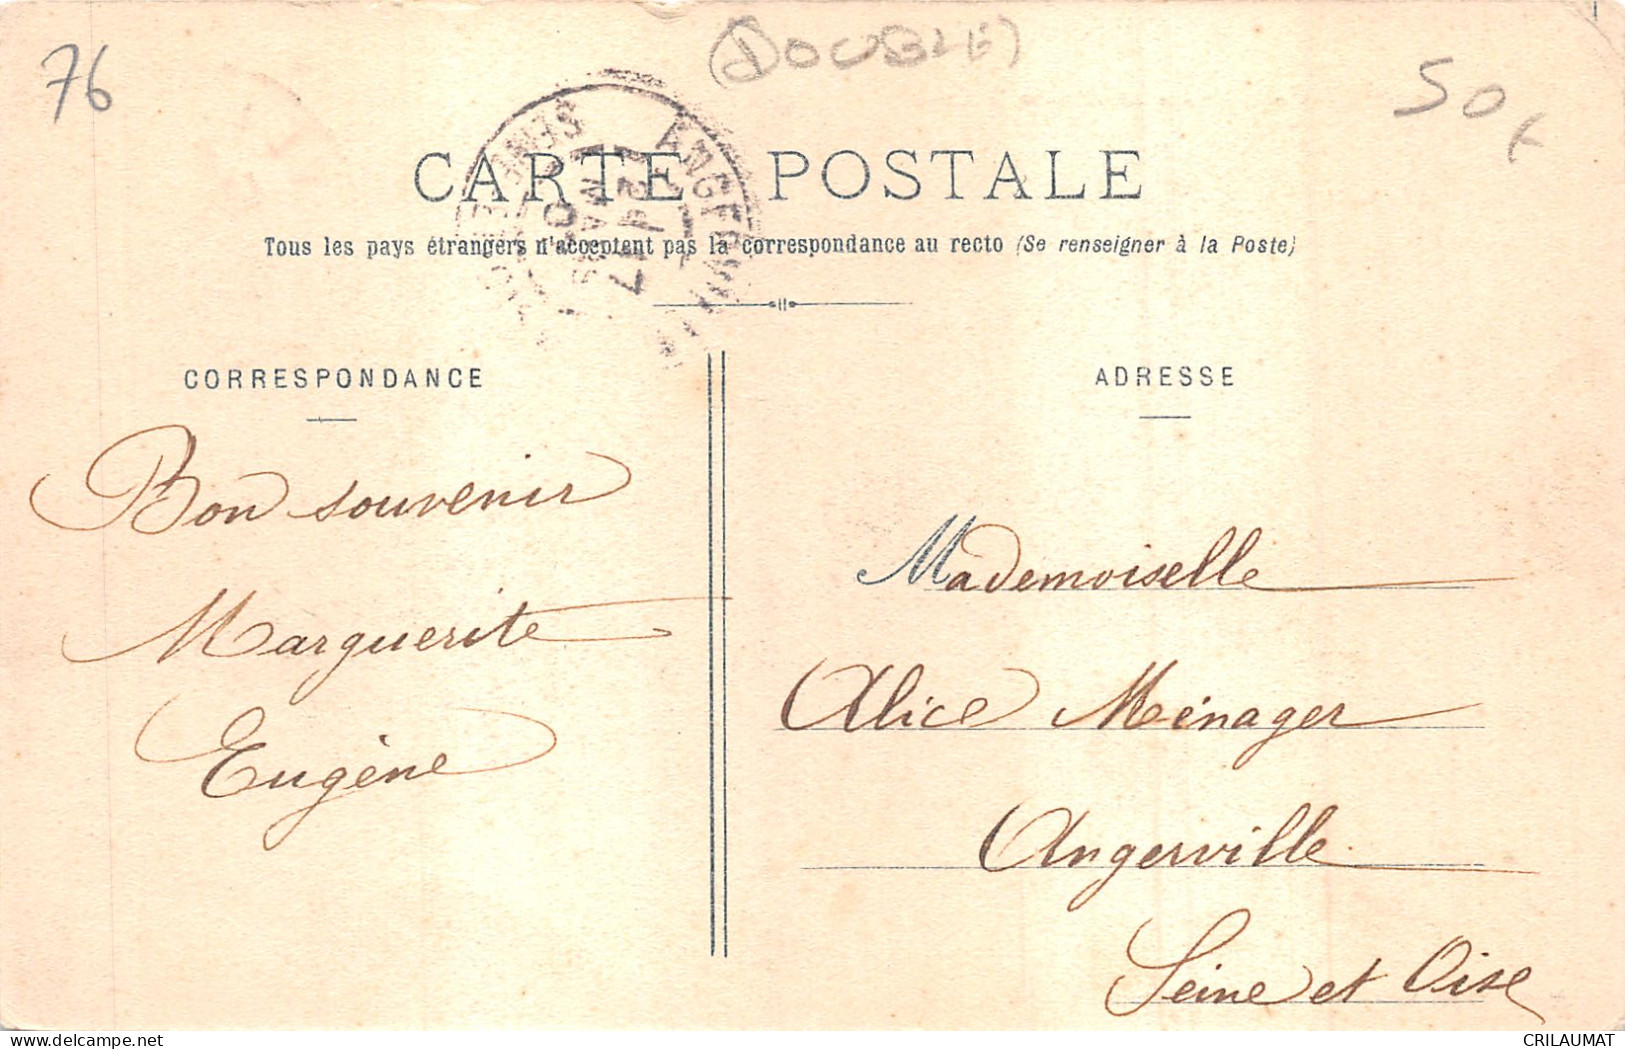 76
(DOUBLE)
50 €
CARTE POSTALE
Tous les pays étrangers n'acceptent pas la correspondance au recto (Se renseigner à la Poste)
ANGERVILLE
SEINE ET
CORRESPONDANCE
Bon souvenir
Marguerite
Eugène
ADRESSE
Mademoiselle
Alice Ménager
Angerville
Seine et Oise
delcampe.net
CRILAUMAT